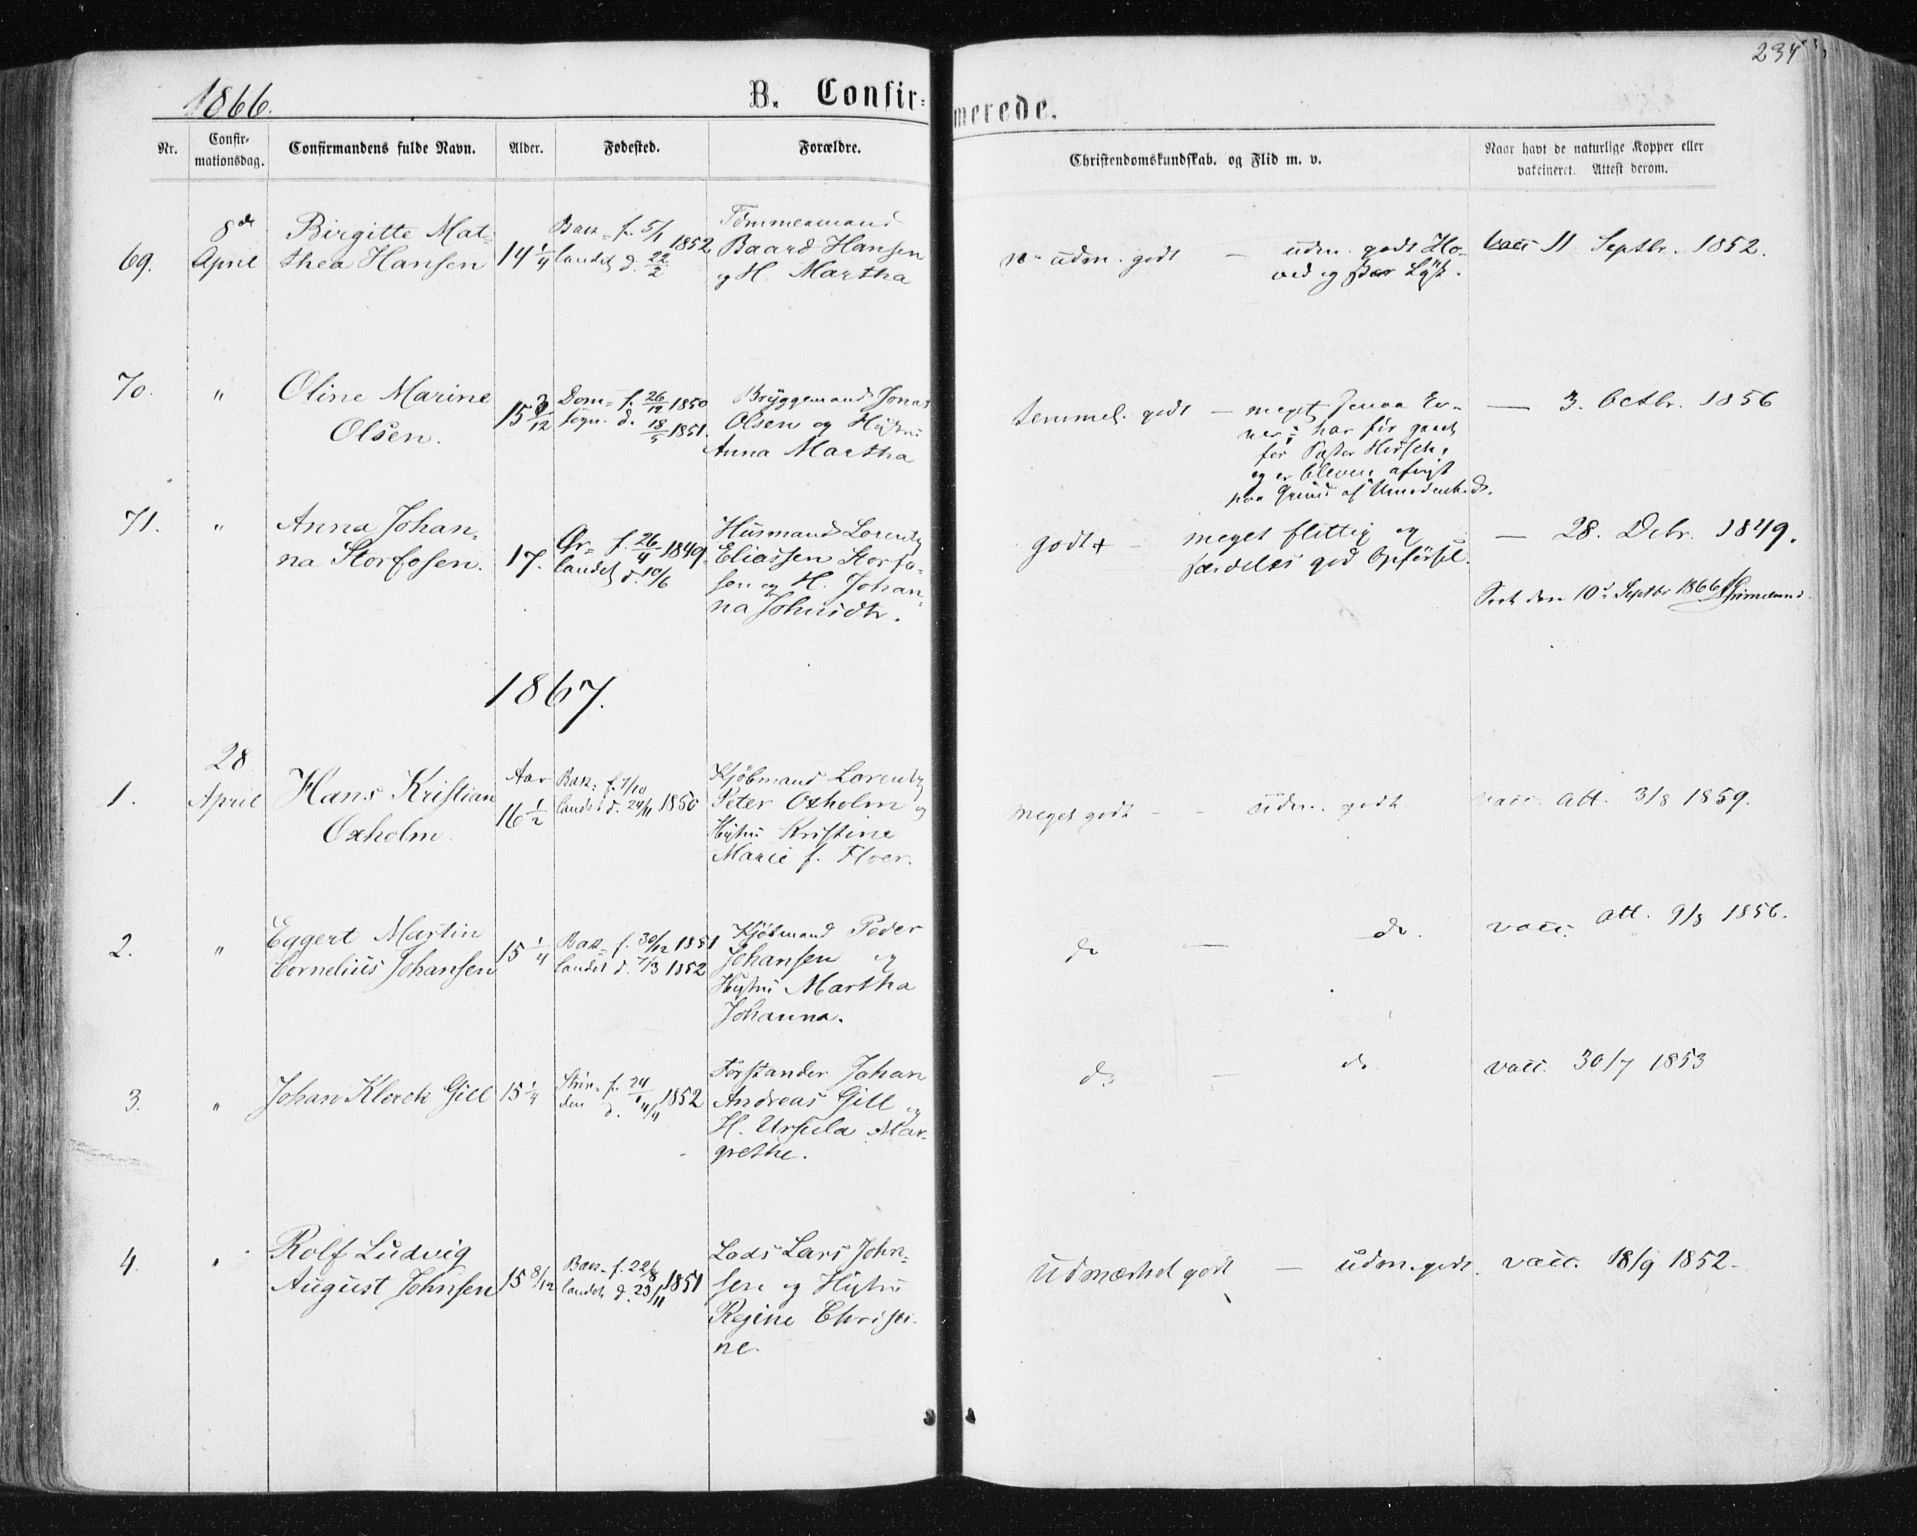 234
1866.
B. Confir-
merede.
Nr.
Confir-
mationsdag.
Confirmandens fulde Navn.
Alder.
Fødested.
Forældre.
Christendomskundskab. og Flid m. v.
Naar havt de naturlige Kopper eller
vakcineret. Attest derom.
69.
8de
April
Birgitte Mat-
thea Hansen
14 1/4
Bak- f. 5/1 1852
landet d. 22/2
Tømmermand
Baard Hansen
og H. Martha
udm. godt — udm. godt Ho-
ved og stor Lyst.
vacc 11 Septbr. 1852.
70.
"
Oline Marine
Olsen.
15 3/12
Dom- f. 26/12 1850
sogn. d. 18/5 1851.
Bryggemand Jonas
Olsen og Hustru
Anna Martha
temmel. godt — meget smaa Ev-
ner; har før gaaet
for Pastor Hirsch,
og er bleven afvist
paa Grund af Umodenhed.
— 3. Octbr. 1856
71.
"
Anna Johan-
na Storfosen.
17.
Ør- f. 26/4 1849.
landet d. 10/6
Husmand Lorentz
Eliassen Storfo-
sen og H. Johan-
na Schmidt.
godt + — meget flittig og
særdeles god Opførsel.
— 28. Debr. 1849.
den 10d Septbr 1866
1867.
1.
28
April
Hans Kristian
Oxholm.
Aar
16 1/2
Bak- f. 7/10
landet d. 24/11 1850
Kjøbmand Lorentz
Peter Oxholm og
Hustru Kristine
Marie f. Floer.
meget godt — udm. godt
vacc. att. 3/8 1859.
2.
"
Eggert Martin
Cornelius Johansen
15 1/4
Bak- f. 30/12 1851
landet d. 7/3 1852
Kjøbmand Peder
Johansen og
Hustru Martha
Johanna.
do — do.
vacc. att. 9/8 1856.
3.
"
Johan Klerck Gill
15 1/4
Strin- f. 24/1 1852
den d. 4/4
Forstander Johan
Andreas Gill og
H. Ursula Mar-
grethe.
do — do
vacc. 30/7 1853
4.
"
Rolf Ludvig
August Johnsen
15 8/12
Bak- f. 22/8 1851
landet d. 23/11
Lods Lars John-
sen og Hustru
Regine Christi-
ne.
Udmærket godt — udm. godt.
vacc. 18/9 1852.